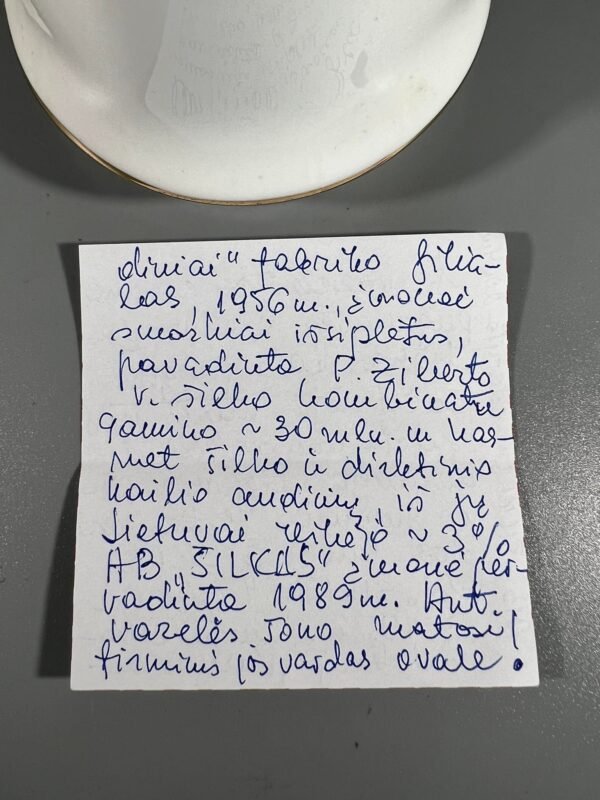 diniai" fabriko filia-
las, 1956 m., įmonei
smarkiai išsiplėtus,
pavadinta P. Ziberto
v. šilko kombinatu
gamino ~ 30 mln. m kas-
met šilko ir dirbtinio
kailio audinių, iš jų
Lietuvai reikėjo ~ 3%
AB „ŠILKAS" įmonė per-
vadinta 1989 m. Ant
vazelės šono matosi
firminis jos vardas ovale!